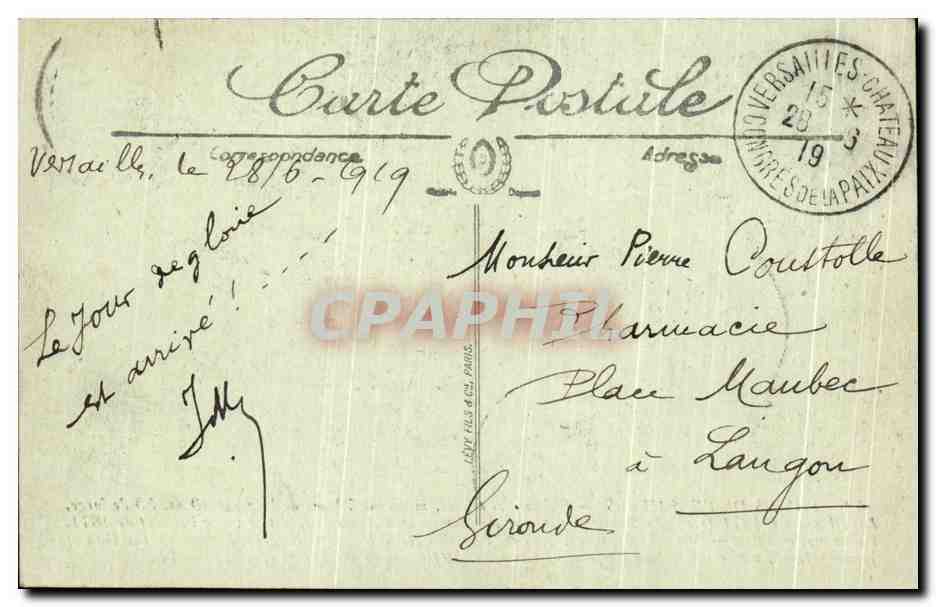 Carte Postale
VERSAILLES-CHATEAU
15 *
28 - 6
19
CONGRES DE LA PAIX
Correspondance
Adresse
Versailles, le 28/6-1919
Le Jour de gloire
est arrivé! ...
Monsieur Pierre Coustolle
Pharmacie
Place Maubec
à Langon
Gironde
LÉVY FILS & Cie, PARIS.
CPAPHIL